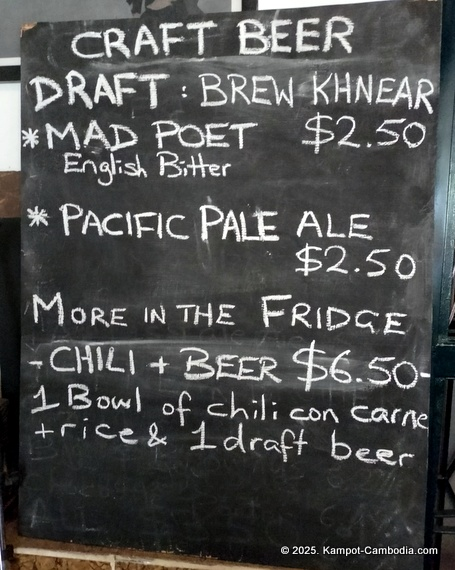 CRAFT BEER
DRAFT : BREW KHNEAR
* MAD POET $2.50
English Bitter
* PACIFIC PALE ALE
$2.50
MORE IN THE FRIDGE
- CHILI + BEER $6.50-
1 Bowl of chili con carne
+rice & 1 draft beer
© 2025. Kampot-Cambodia.com